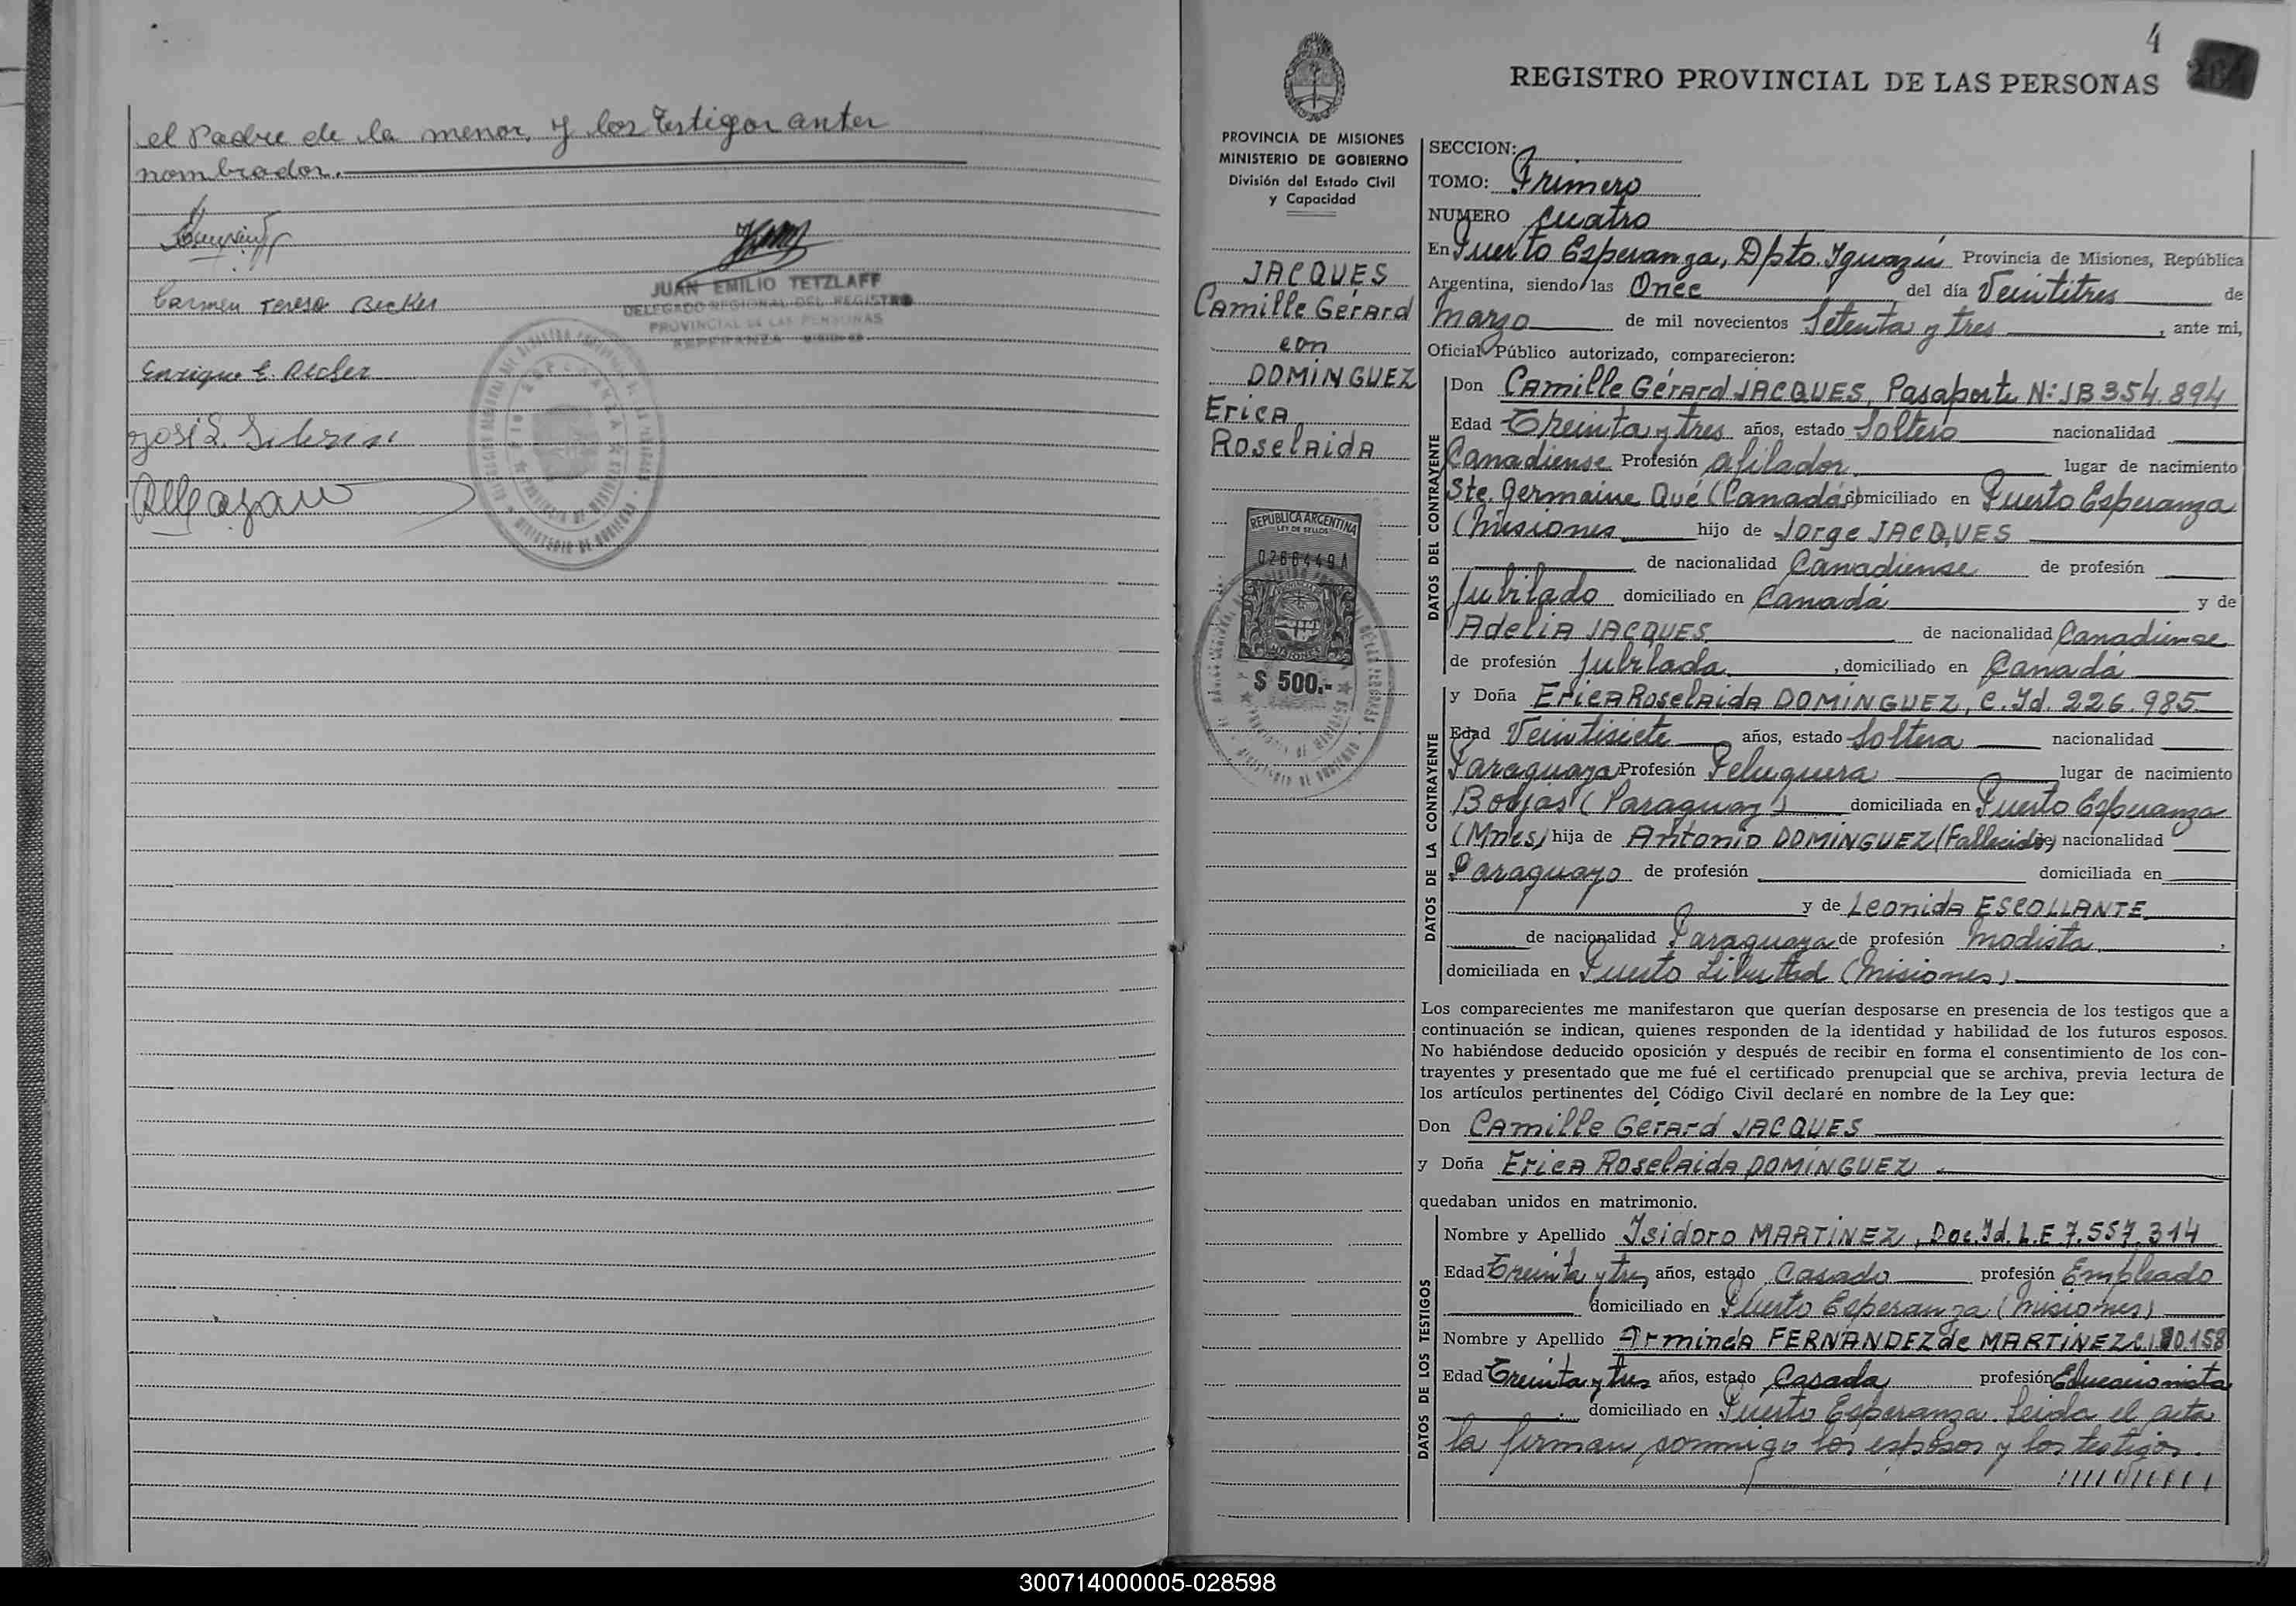 el Padre de la menor, y los testigos antes
nombrados.
Carmen Teresa Becker
Enrique E. Becker
JUAN EMILIO TETZLAFF
DELEGADO REGIONAL DEL REGISTRO
PROVINCIAL DE LAS PERSONAS
ESPERANZA MISIONES
4
REGISTRO PROVINCIAL DE LAS PERSONAS
PROVINCIA DE MISIONES
MINISTERIO DE GOBIERNO
División del Estado Civil
y Capacidad
JACQUES
Camille Gérard
con
DOMÍNGUEZ
Erica
Roselaida
REPUBLICA ARGENTINA
LEY DE SELLOS
0266449A
MISIONES
$ 500.-
SECCION:
TOMO: Primero
NUMERO cuatro
En Puerto Esperanza, Dpto. Iguazú Provincia de Misiones, República
Argentina, siendo las Once del día Veintitres de
Marzo de mil novecientos Setenta y tres, ante mi,
Oficial Público autorizado, comparecieron:
DATOS DEL CONTRAYENTE
Don Camille Gérard JACQUES, Pasaporte Nº JB 354.894
Edad Treinta y tres años, estado Soltero nacionalidad
Canadiense Profesión afilador lugar de nacimiento
Ste. Germaine Qué (Canadá) domiciliado en Puerto Esperanza
(Misiones hijo de Jorge JACQUES
de nacionalidad Canadiense de profesión
Jubilado domiciliado en Canadá y de
Adelia JACQUES de nacionalidad Canadiense
de profesión Jubilada, domiciliado en Canadá
DATOS DE LA CONTRAYENTE
y Doña Erica Roselaida DOMÍNGUEZ, C. Id. 226.985
Edad Veintisiete años, estado Soltera nacionalidad
Paraguaya Profesión Peluquera lugar de nacimiento
Borjas (Paraguay) domiciliada en Puerto Esperanza
(Mnes) hija de Antonio DOMÍNGUEZ (Fallecido) de nacionalidad
Paraguayo de profesión domiciliada en
y de Leonida ESCOLLANTE
de nacionalidad Paraguaya de profesión Modista,
domiciliada en Puerto Libertad (Misiones)
Los comparecientes me manifestaron que querían desposarse en presencia de los testigos que a
continuación se indican, quienes responden de la identidad y habilidad de los futuros esposos.
No habiéndose deducido oposición y después de recibir en forma el consentimiento de los con-
trayentes y presentado que me fué el certificado prenupcial que se archiva, previa lectura de
los artículos pertinentes del Código Civil declaré en nombre de la Ley que:
Don Camille Gérard JACQUES
y Doña Erica Roselaida DOMÍNGUEZ
quedaban unidos en matrimonio.
DATOS DE LOS TESTIGOS
Nombre y Apellido Isidoro MARTÍNEZ, Doc. Id. L.E 7.557.314
Edad Treinta y tres años, estado Casado profesión Empleado
domiciliado en Puerto Esperanza (Misiones)
Nombre y Apellido Arminda FERNANDEZ de MARTÍNEZ
Edad Treinta y tres años, estado Casada profesión Educacionista
domiciliado en Puerto Esperanza. Leída el acta
la firman conmigo los esposos y los testigos.
300714000005-028598